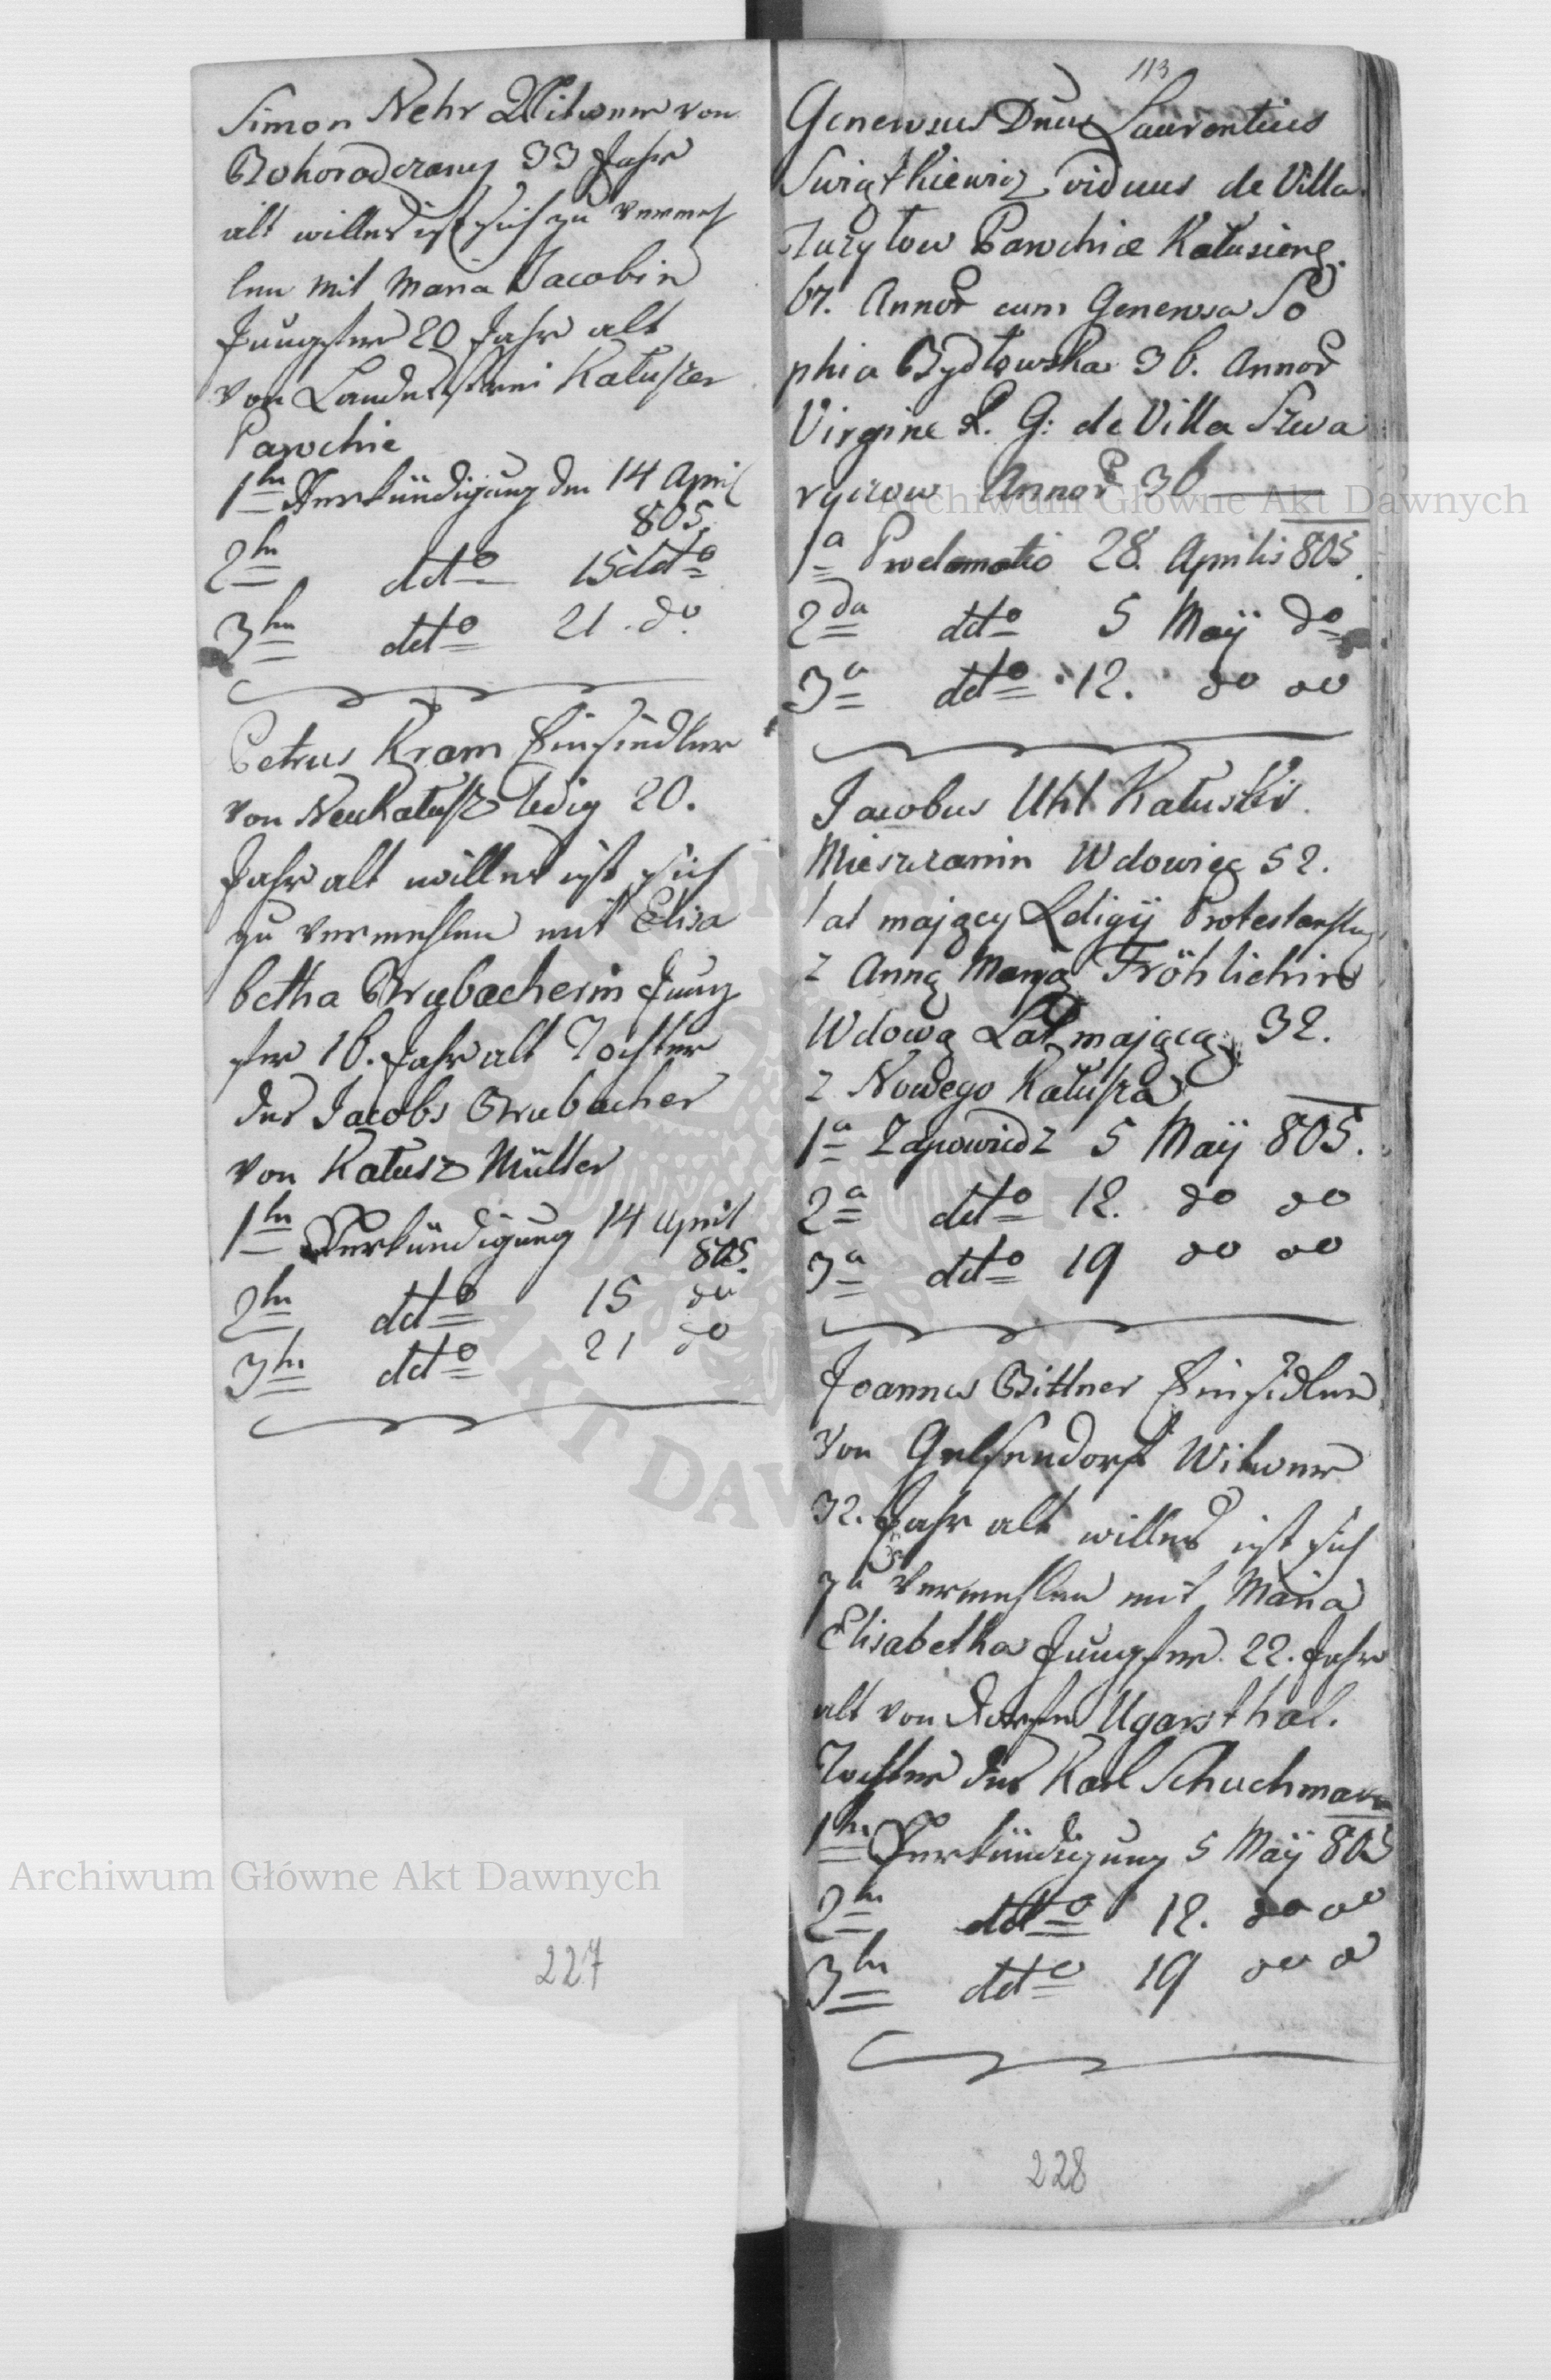 Simon Nehr Witwer von
Bohorodczany 33 Jahr
alt willens ist sich zu vermeh
len mit Maria Jacobin
Jungfer 20 Jahr alt
von Landestreu Kałuszer
Parochie
1te Verkündigung den 14 April
805.
2te ddto 15 ddto
3te ddto 21. do.
Petrus Kram Einsiedler
von NeuKałusz ledig 20.
Jahr alt willens ist sich
zu vermehlen mit Elisa
betha Brubacherin Jung
fer 16. Jahr alt Tochter
des Jacobs Brubacher
von Kałusz Müller
1te Verkündigung 14 April
805.
2te ddto 15 do
3te ddto 21 do
227
113
Generosus Dnus Laurentius
Swiątkiewicz viduus de Villa
Parochiæ Kałusiens.
67. Annor cum Generosa So
phia Bydłowska 36. Annor
Virgine R. G: de Villa Szwa
ryczow Annor 36
1a Proclamatio 28. Aprilis 805.
2da ddto 5 Maij do
3a ddto 12. do do
Jacobus Uhl Kałuski
Mieszczanin Wdowiec 52.
lat maiący Religij
z Anną Maryą Fröhlichin
Wdową Lat maiącą 32.
z Nowego Kałusza
1a Zapowiedz 5 Maij 805.
2a ddto 12. do do
3a ddto 19 do do
Joannes Bittner Einsidler
von Gelsendorf Witwer
32. Jahr alt willens ist sich
zu vermehlen mit Maria
Elisabetha Jungfer. 22. Jahr
alt von Dorfe Ugarsthal.
Tochter des Karl Schuchmann
1te Verkündigung 5 Maij 805
2te ddto 12. do do
3te ddto 19 do do
228
Archiwum Główne Akt Dawnych
Archiwum Główne Akt Dawnych
AKT DAWNYCH